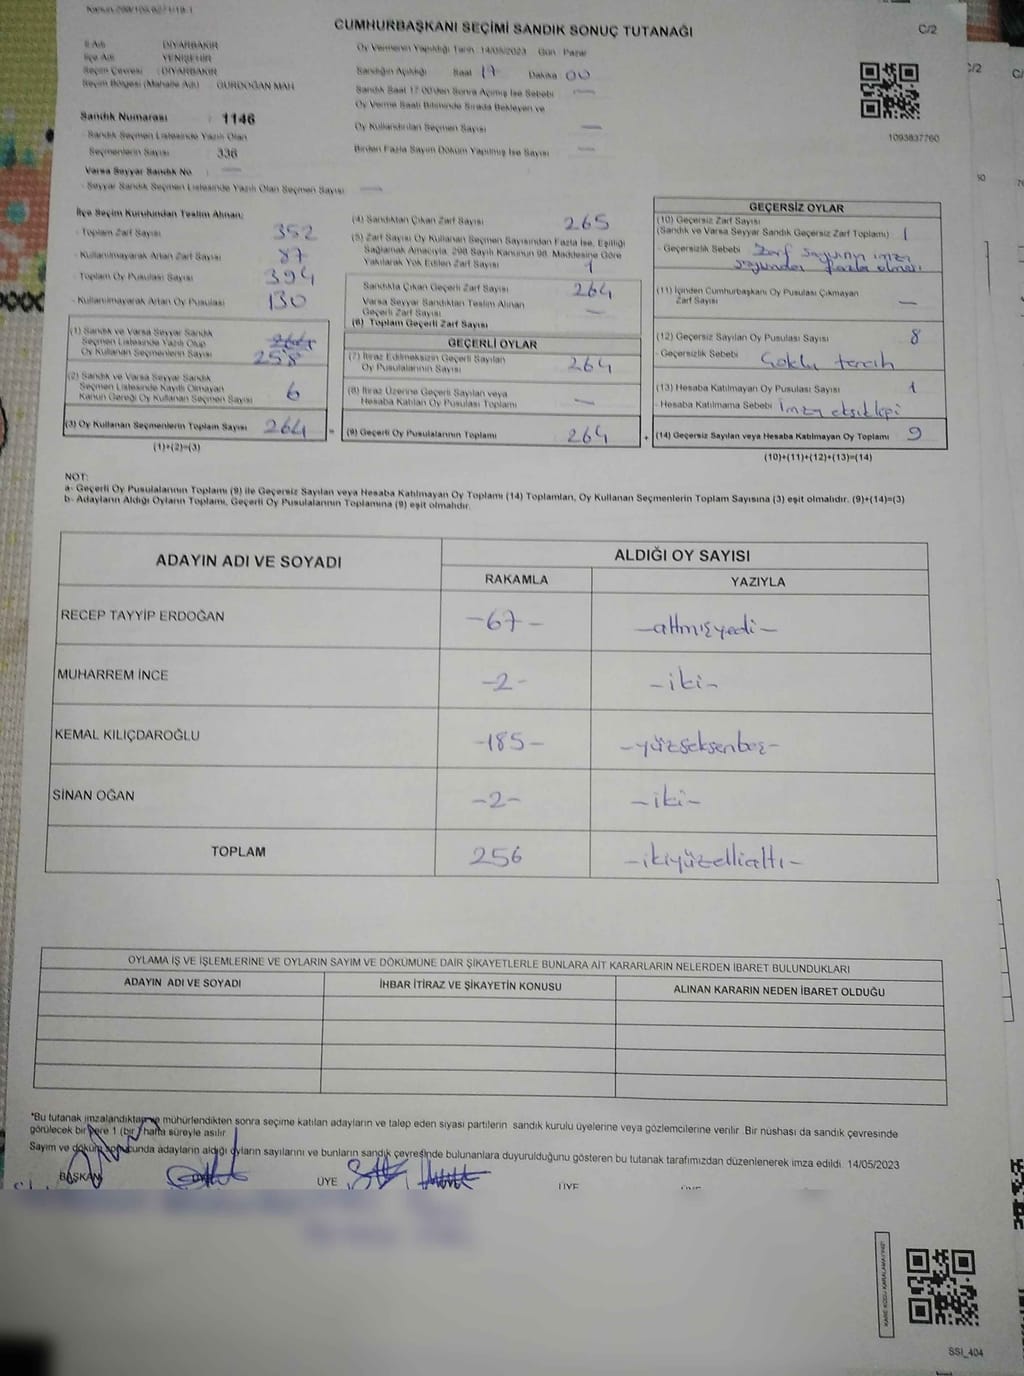 CUMHURBAŞKANI SEÇİMİ SANDIK SONUÇ TUTANAĞI
C/2
İl Adı : DİYARBAKIR
İlçe Adı : YENİŞEHİR
Seçim Çevresi : DİYARBAKIR
Seçim Bölgesi (Mahalle Adı) : GÜRDOĞAN MAH
Sandık Numarası : 1146
- Sandık Seçmen Listesinde Yazılı Olan
Seçmenlerin Sayısı : 336
Varsa Seyyar Sandık No : —
- Seyyar Sandık Seçmen Listesinde Yazılı Olan Seçmen Sayısı : —
Oy Vermenin Yapıldığı Tarih: 14/05/2023 Gün: Pazar
Sandığın Açıldığı Saat 17 Dakika 00
Sandık Saat 17:00'den Sonra Açılmış İse Sebebi —
Oy Verme Saati Bitiminde Sırada Bekleyen ve
Oy Kullandırılan Seçmen Sayısı —
Birden Fazla Sayım Döküm Yapılmış İse Sayısı —
1093837760
İlçe Seçim Kurulundan Teslim Alınan;
- Toplam Zarf Sayısı 352
- Kullanılmayarak Artan Zarf Sayısı 87
- Toplam Oy Pusulası Sayısı 394
- Kullanılmayarak Artan Oy Pusulası 130
(1) Sandık ve Varsa Seyyar Sandık
Seçmen Listesinde Yazılı Olup
Oy Kullanan Seçmenlerin Sayısı 258
(2) Sandık ve Varsa Seyyar Sandık
Seçmen Listesinde Kayıtlı Olmayan
Kanun Gereği Oy Kullanan Seçmen Sayısı 6
(3) Oy Kullanan Seçmenlerin Toplam Sayısı 264
(1)+(2)=(3)
(4) Sandıktan Çıkan Zarf Sayısı 265
(5) Zarf Sayısı Oy Kullanan Seçmen Sayısından Fazla İse, Eşitliği
Sağlamak Amacıyla, 298 Sayılı Kanunun 98. Maddesine Göre
Yakılarak Yok Edilen Zarf Sayısı 1
Sandıkta Çıkan Geçerli Zarf Sayısı 264
Varsa Seyyar Sandıktan Teslim Alınan
Geçerli Zarf Sayısı —
(6) Toplam Geçerli Zarf Sayısı
GEÇERLİ OYLAR
(7) İtiraz Edilmeksizin Geçerli Sayılan
Oy Pusulalarının Sayısı 264
(8) İtiraz Üzerine Geçerli Sayılan veya
Hesaba Katılan Oy Pusulası Toplamı —
= (9) Geçerli Oy Pusulalarının Toplamı 264
GEÇERSİZ OYLAR
(10) Geçersiz Zarf Sayısı
(Sandık ve Varsa Seyyar Sandık Geçersiz Zarf Toplamı) 1
- Geçersizlik Sebebi Zarf sayısının imza
sayısından fazla olması
(11) İçinden Cumhurbaşkanı Oy Pusulası Çıkmayan
Zarf Sayısı —
(12) Geçersiz Sayılan Oy Pusulası Sayısı 8
- Geçersizlik Sebebi Çoklu tercih
(13) Hesaba Katılmayan Oy Pusulası Sayısı 1
- Hesaba Katılmama Sebebi İmza eksikliği
+ (14) Geçersiz Sayılan veya Hesaba Katılmayan Oy Toplamı 9
(10)+(11)+(12)+(13)=(14)
NOT:
a- Geçerli Oy Pusulalarının Toplamı (9) ile Geçersiz Sayılan veya Hesaba Katılmayan Oy Toplamı (14) Toplamları, Oy Kullanan Seçmenlerin Toplam Sayısına (3) eşit olmalıdır. (9)+(14)=(3)
b- Adayların Aldığı Oyların Toplamı, Geçerli Oy Pusulalarının Toplamına (9) eşit olmalıdır.
ADAYIN ADI VE SOYADI
ALDIĞI OY SAYISI
RAKAMLA YAZIYLA
RECEP TAYYİP ERDOĞAN -67- -altmışyedi-
MUHARREM İNCE -2- -iki-
KEMAL KILIÇDAROĞLU -185- -yüzseksenbeş-
SİNAN OĞAN -2- -iki-
TOPLAM 256 -ikiyüzellialtı-
OYLAMA İŞ VE İŞLEMLERİNE VE OYLARIN SAYIM VE DÖKÜMÜNE DAİR ŞİKAYETLERLE BUNLARA AİT KARARLARIN NELERDEN İBARET BULUNDUKLARI
ADAYIN ADI VE SOYADI İHBAR İTİRAZ VE ŞİKAYETİN KONUSU ALINAN KARARIN NEDEN İBARET OLDUĞU
*Bu tutanak imzalandıktan ve mühürlendikten sonra seçime katılan adayların ve talep eden siyasi partilerin sandık kurulu üyelerine veya gözlemcilerine verilir. Bir nüshası da sandık çevresinde
görülecek bir yere 1 (bir) hafta süreyle asılır.
Sayım ve döküm sonucunda adayların aldığı oyların sayılarını ve bunların sandık çevresinde bulunanlara duyurulduğunu gösteren bu tutanak tarafımızdan düzenlenerek imza edildi. 14/05/2023
BAŞKAN ÜYE ÜYE
SSI_404